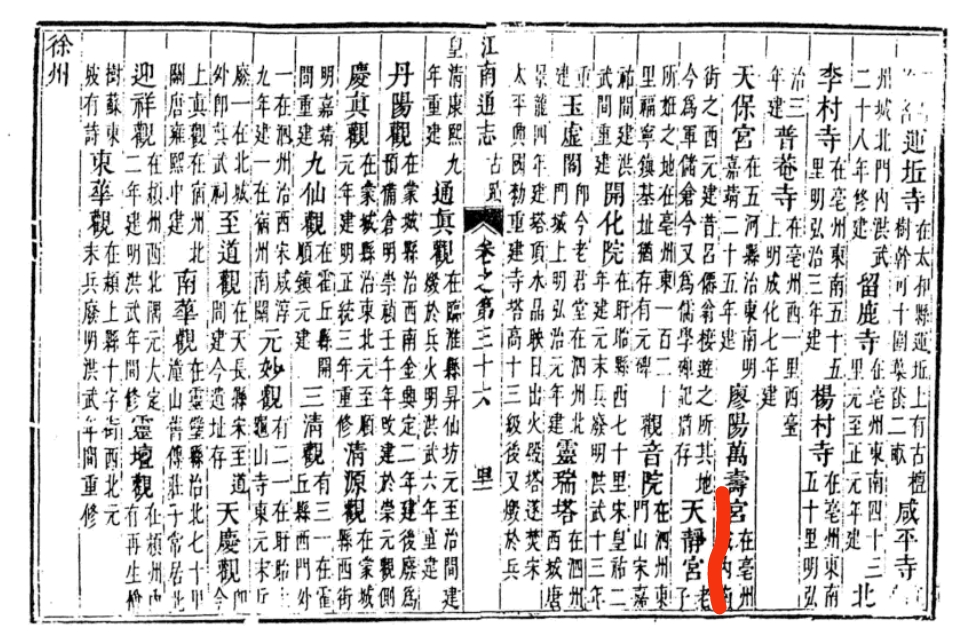 迎坵寺在太和縣迎坵上有古檀樹幹可十圍葉蔭二畝咸平寺
州城北門內洪武二十八年修建留鹿寺在亳州東南四十三里元至正元年建北
李村寺在亳州東南五十五里明弘治三年建楊村寺在亳州東南五十里明弘
治三年建普菴寺在亳州西一里西亳上明成化七年建
天保宮在五河縣治東南明嘉靖二十五年建廖陽萬壽宮在亳州
街之西元建昔呂僊翁接遊之所其地今為軍儲倉今又為儒學碑記猶存天靜宮老子
所姙之地在亳州東一百二十里福寧鎮基址猶存有元碑觀音院在泗州東門山宋嘉
祐間建洪武間重建開化院在盱眙縣西七十里宋皇祐二年建元末兵廢明洪武十三年
重建玉虛閣即今老君堂在泗州北門城上明弘治元年建靈瑞塔在泗州西城唐
景龍四年建塔頂水晶映日出火燬塔遂焚宋太平興國勅重建寺塔高十三級後又燬於兵
江南通志 古蹟 卷之第三十六
皇清康熙九年重建通真觀在臨淮縣昇仙坊元至治間建燬於兵火明洪武六年重建
丹陽觀在蒙城縣治西南金興定二年建後廢為預備倉明崇禎壬午年改建於崇元觀側
慶真觀在蒙城縣治東北元至順元年建明正統三年重修清源觀在蒙城縣西街
明嘉靖間重建九仙觀在霍丘縣開順鎮元建三清觀有三一在霍丘縣西門外
一在泗州治西宋咸淳九年建一在宿州南關元妙觀有二一在盱眙上龜山寺東元末丘
廢一在北城外即真武祠至道觀在天長縣宋至道間建今遺址存天慶觀今即
上真觀在宿州北關唐雍熙中建南華觀在靈璧縣治北七十里潼山舊傳莊子常居此
迎祥觀在潁州西北隅元大定二年建明洪武年間修靈壇觀在潁州內有再生檜
樹蘇東坡有詩東華觀在潁上縣十字街西北元末兵廢明洪武年間重修
徐州